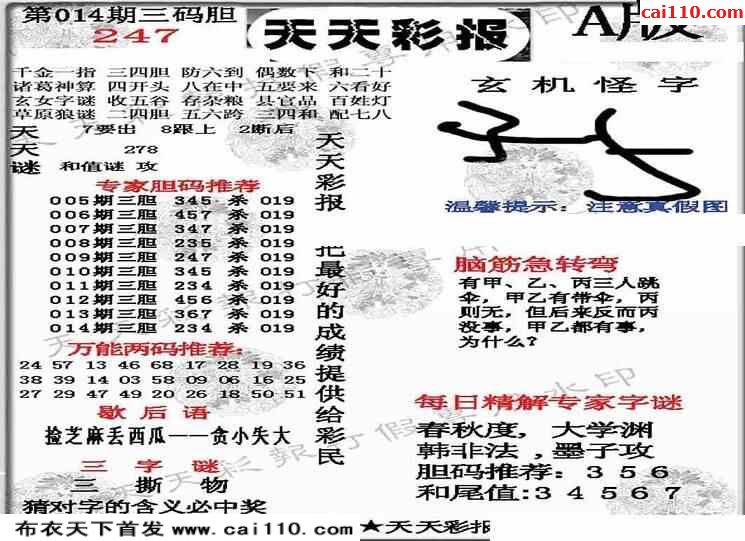 第014期三码胆
247
天天彩报
A版
cai110.com
千金一指 三四胆 防六到 偶数下 和二十
诸葛神算 四开头 八在中 五要来 六看好
玄女字谜 收五谷 存杂粮 县官品 百姓灯
草原狼谜 二四胆 五六跨 三四和 配七八
天天谜
7要出 8跟上 2断后
278
和值谜 攻
专家胆码推荐
005期三胆 345 杀 019
006期三胆 457 杀 019
007期三胆 347 杀 019
008期三胆 235 杀 019
009期三胆 247 杀 019
010期三胆 345 杀 019
011期三胆 234 杀 019
012期三胆 456 杀 019
013期三胆 367 杀 019
014期三胆 234 杀 019
万能两码推荐:
24 57 13 46 68 17 28 19 36
38 39 14 03 58 09 06 16 25
27 29 47 49 20 26 18 50 51
歇后语
捡芝麻丢西瓜——贪小失大
三字谜
三 撕 物
猜对字的含义必中奖
天天彩报 把最好的成绩提供给彩民
玄机怪字
温馨提示：注意真假图
脑筋急转弯
有甲、乙、丙三人跳
伞，甲乙有带伞，丙
则无，但后来反而丙
没事，甲乙都有事，
为什么？
每日精解专家字谜
春秋度, 大学渊
韩非法,墨子攻
胆码推荐：356
和尾值:34567
布衣天下首发 www.cai110.com
★天天彩报